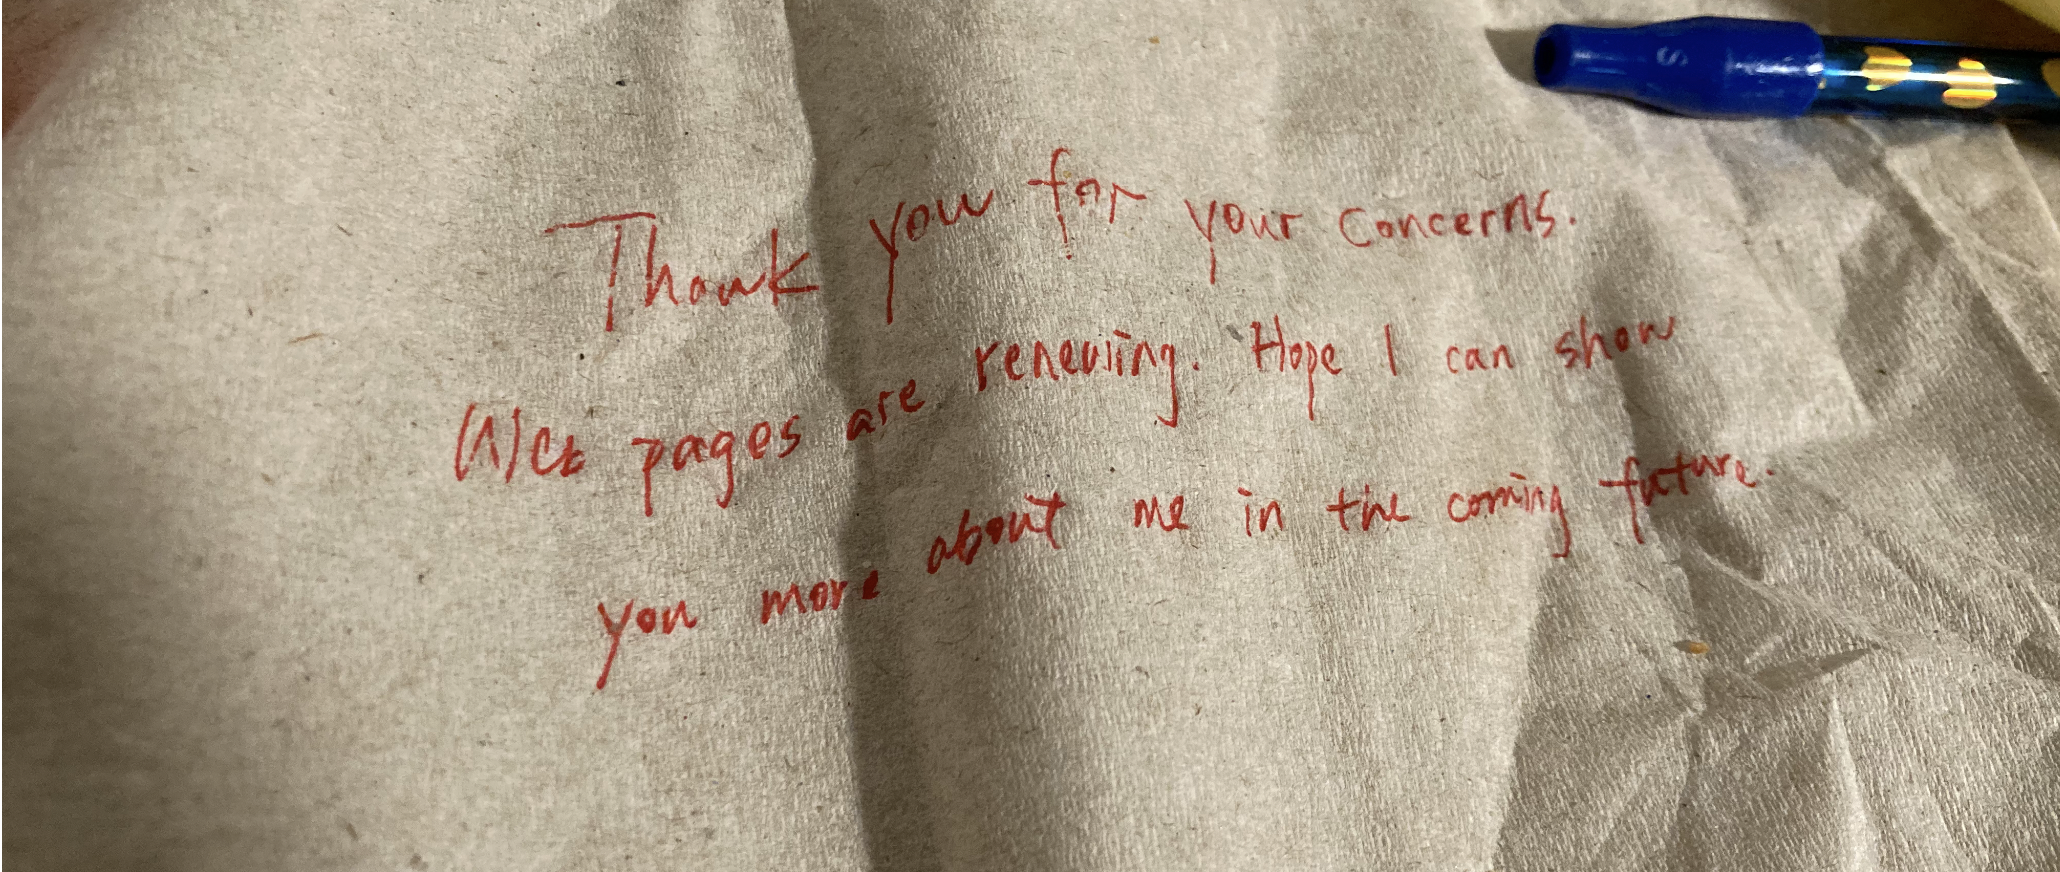 Thank you for your concerns.
Web pages are renewing. Hope I can show
you more about me in the coming future.
S